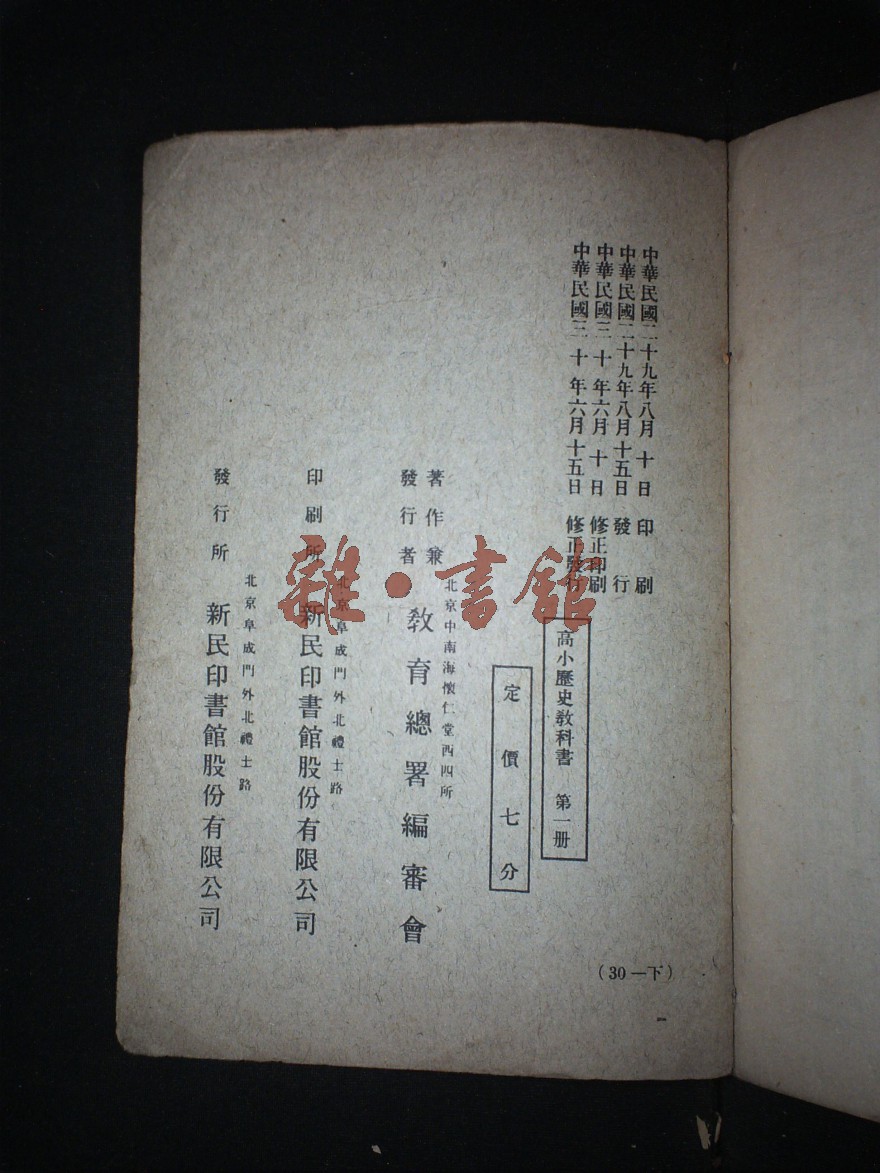 中華民國二十九年八月十日 印刷
中華民國二十九年八月十五日 發行
中華民國三十年六月十日 修正印刷
中華民國三十年六月十五日 修正發行
高小歷史教科書 第一册
定價七分
北京中南海懷仁堂西四所
著作兼
發行者
教育總署編審會
北京阜成門外北禮士路
印刷所 新民印書館股份有限公司
北京阜成門外北禮士路
發行所 新民印書館股份有限公司
(30—下)
雜·書館